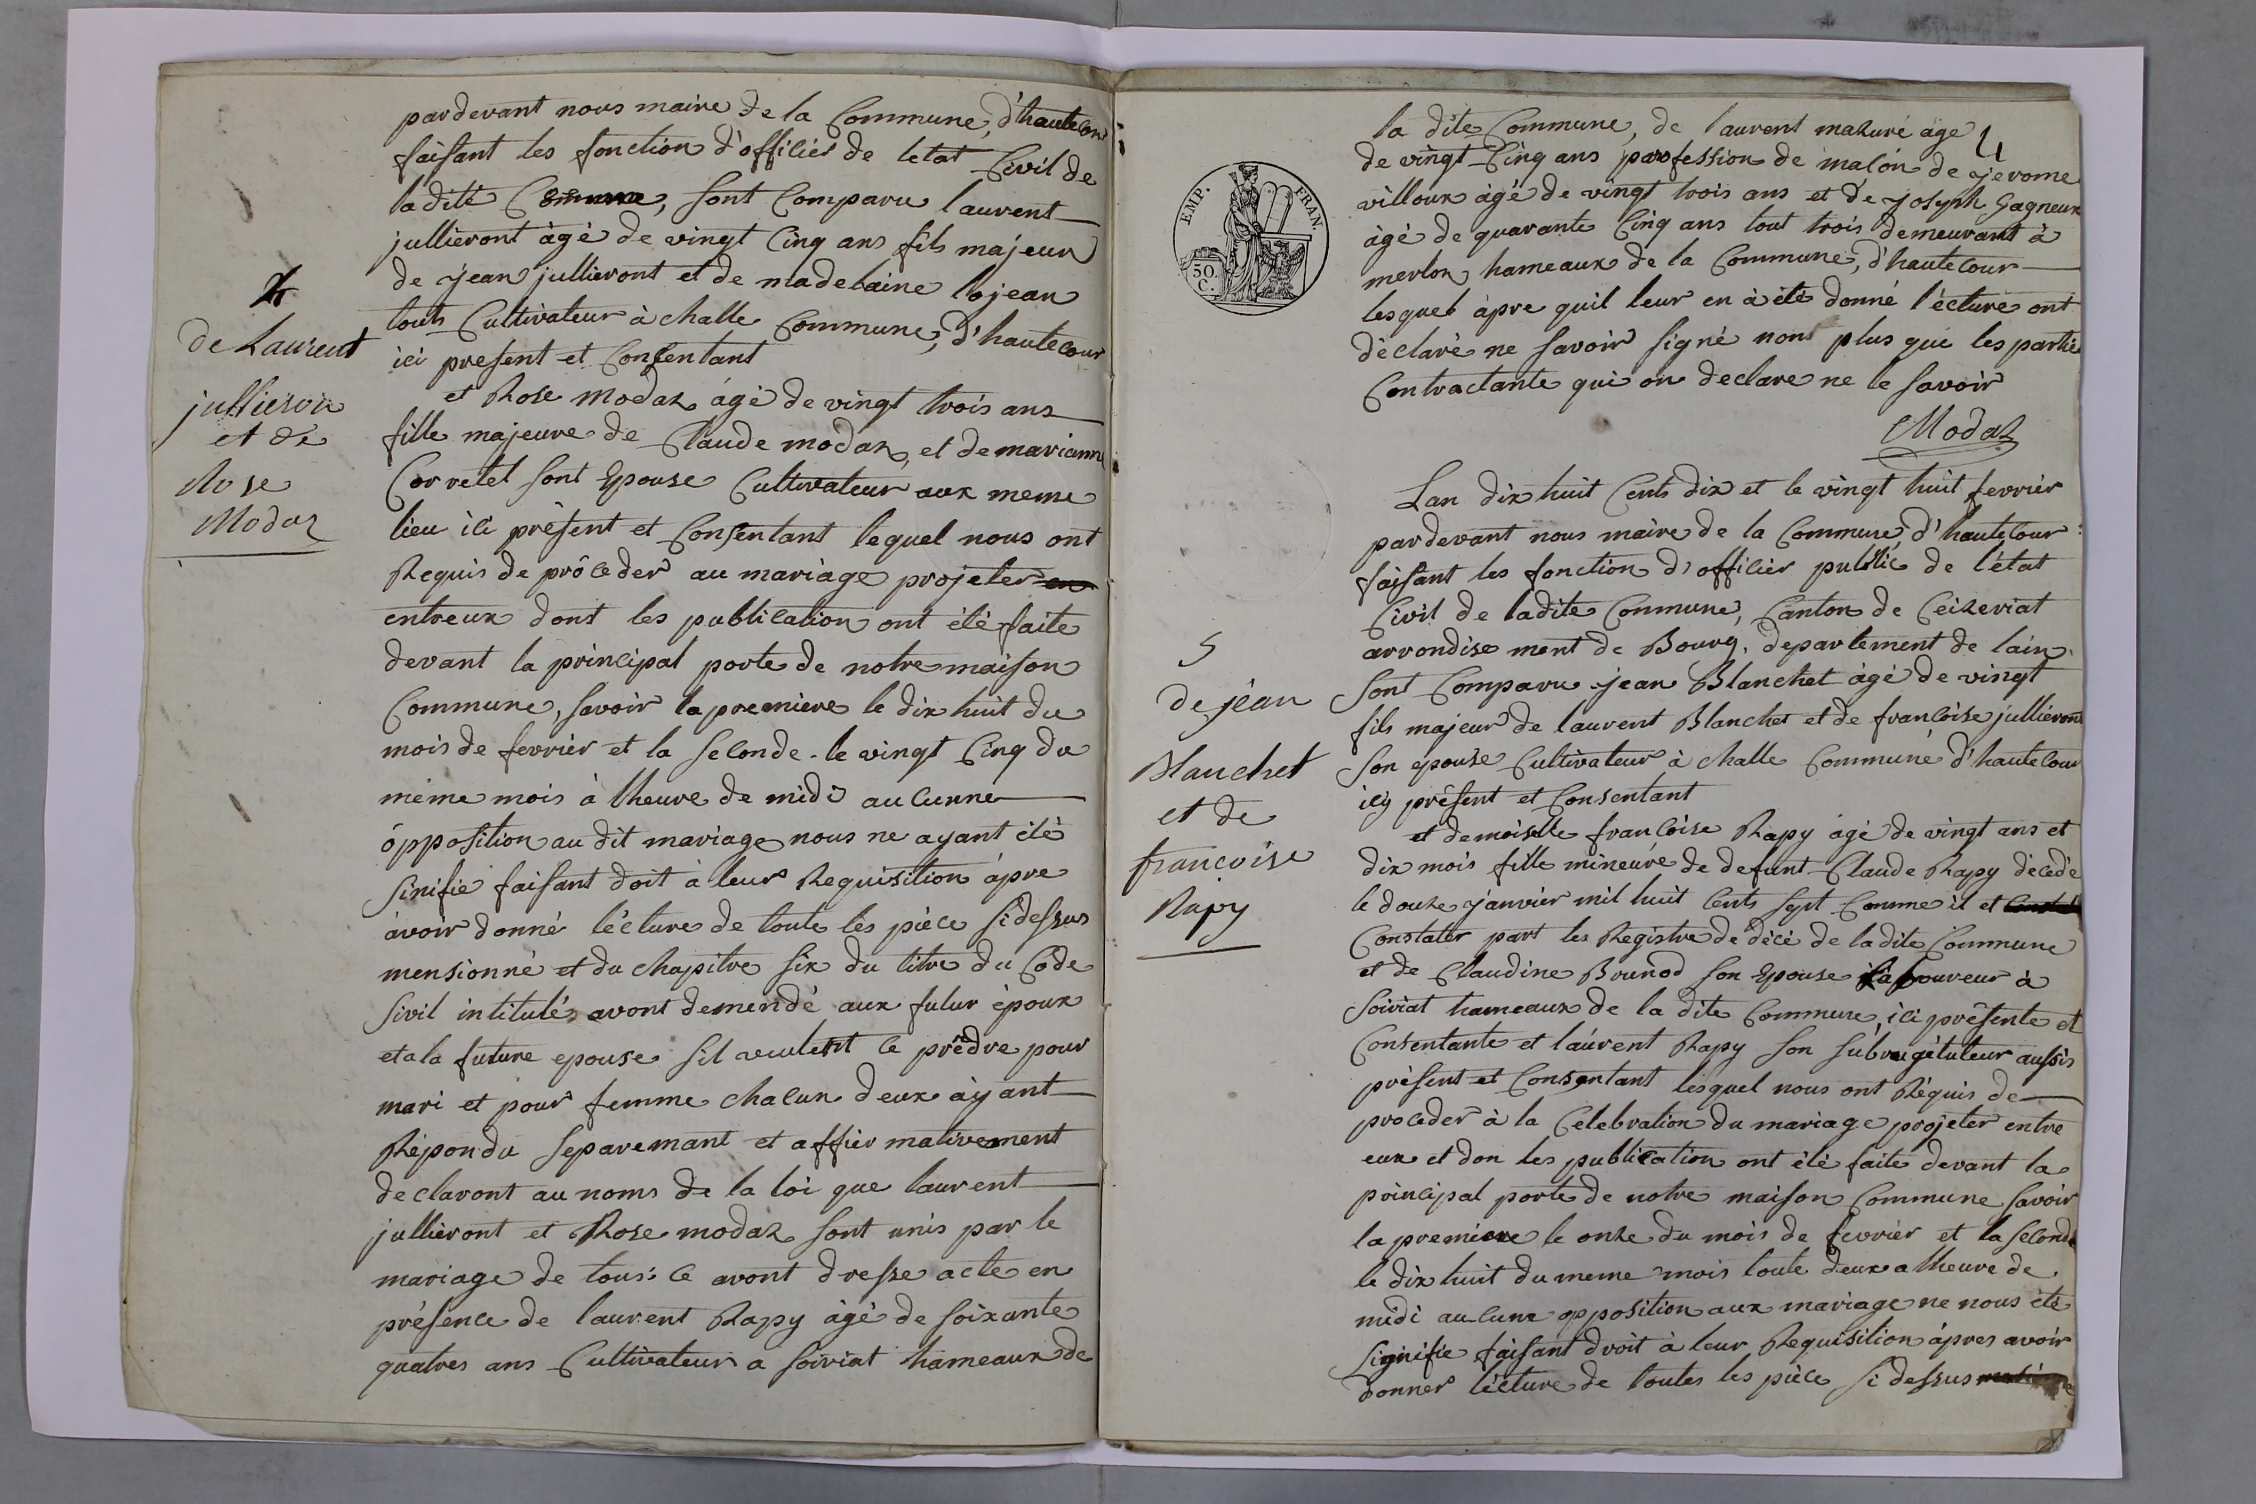 pardevant nous maire de la Commune, d'hautecour
faisant les fonction d'officiér de letat Civil de
la dite Commune, sont Comparu laurent
jullieront àgé de vingt Cinq ans fils majeur
de jean jullieront et de madelaine lojean
touts Cultivateur à challe Commune, d'hautecour
ici present et Consentant
et Rose Modaz àgé de vingt trois ans
fille majeure de Claude modaz, et de marianne
Corretel sont Epouse Cultivateur aux meme
lieu ici présent et Consentant lequel nous ont
Requis de procéder au mariage projeter en
entreux dont les publication ont été faite
devant la principal porte de notre maison
Commune, savoir la premiere le dix huit du
mois de fevrier et la seconde le vingt Cinq du
méme mois à lheure de midi aucunne
òpposition au dit mariage nous ne ayant été
sinifié faisant doit à leurs Requisition àpre
àvoir donné lécture de toute les pièce sidessus
mensionné et du chapitre six du titre du Code
sivil intitulés avont demendé aux futur époux
et a la future epouse sil veulent ce prêdre pour
mari et pour femme chacun deux àyant
Répondu separemant et affiermativement
declaront au noms de la loi que laurent
jullieront et Rose modaz sont unis par le
mariage de tous ce avont dresse acte en
présence de laurent Rapy àgé de soixante
quatres ans Cultivateur a soiriat hameaux de
4
de Laurent
jullieron
et de
Rose
Modaz
4
la dite Commune, de laurent mazuré àgé
de vingt Cinq ans parofession de macon de jerome
villoux àgé de vingt trois ans et de joseph Gagneux
àgé de quarante Cinq ans tout trois demeurant à
merlon hameaux de la Commune, d'hautecour
lesquel àpre quil leur en à été donné l'écture ont
déclaré ne savoir signé nont plus que les partie
Contractante qui on declare ne le savoir
Modaz
EMP. FRAN.
50. C.
Lan dix huit Cents dix et le vingt huit fevrier
pardevant nous maire de la Commune d'hautecour
faisant les fonction d'officier public de l'état
Civil de ladite Commune, Canton de Ceizeriat
arrondise ment de Bourg, departement de lain
sont Comparu jean Blanchet àgé de vingt
fils majeur de laurent Blanchet et de francoise jullieront
son epouse Cultivateur à challe Commune d'hautecour
icy présent et Consentant
et demoiselle francoise Rapy àgé de vingt ans et
dix mois fille mineure de defunt Claude Rapy décedé
le douze janvier mil huit Cents sept Comme il et
Constater part les Registre de décé de ladite Commune
et de Claudine Brunod son Epouse laboureur à
soiriat hameaux de la dite Commune, ici présente et
Consentante et laurent Rapy son subrogétuteur aussis
présent et Consentant lesquel nous ont Réquis de
proceder à la Celebration du mariage projeter entre
eux et don les publication ont été faite devant la
principal porte de notre maison Commune savoir
la premiere le onze du mois de fevrier et la seconde
le dix huit du meme mois toute deux a lheure de
midi aucune opposition aux mariage ne nous été
signifie faisant droit à leur Requisition àpres avoir
donner lécture de toutes les pièce si dessus
5
de jean
Blanchet
et de
francoise
Rapy